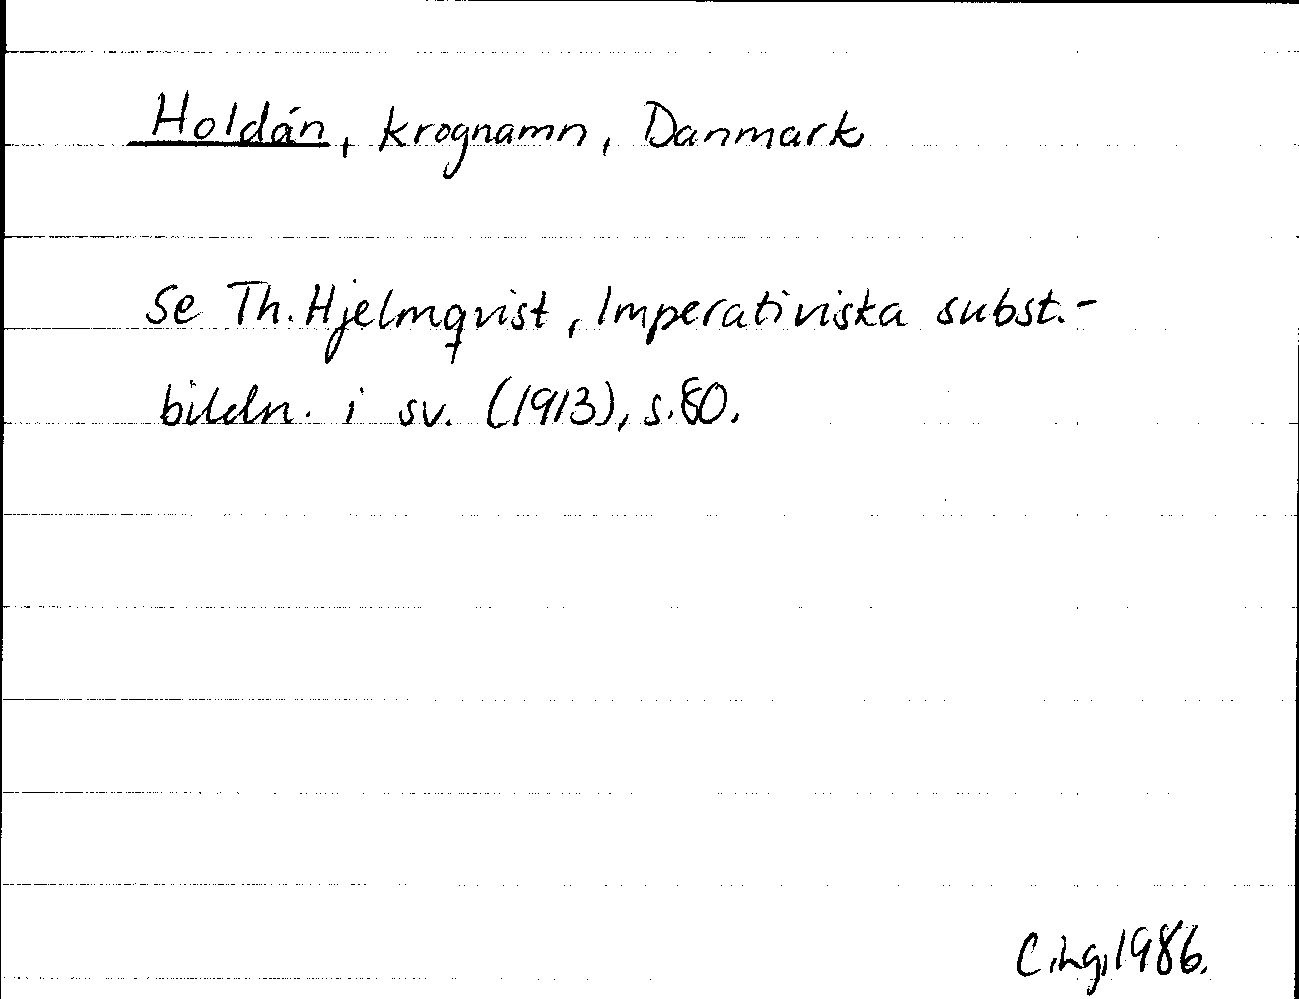 Holdán, krognamn, Danmark
Se Th. Hjelmqvist, Imperativiska subst.-
bildn. i sv. (1913), s. 80.
C.Lg, 1986.